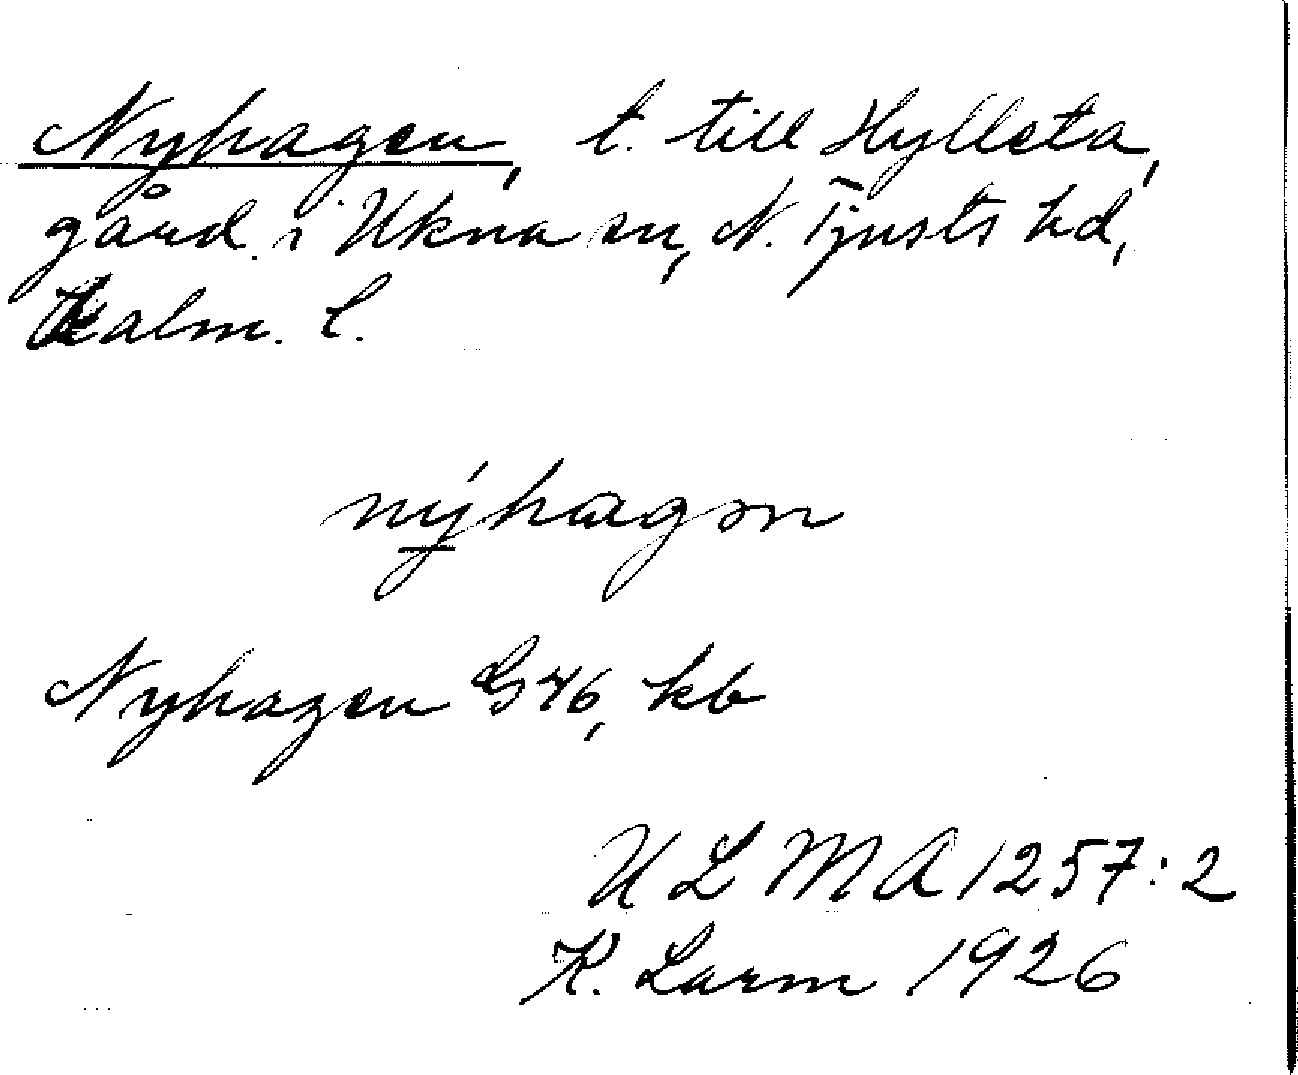 Nyhagen, t. till Hyllsta,
gård i Ukna sn, N. Tjusts hd,
Kalm. l.
nýhagən
Nyhagen G46, kb
ULMA 1257:2
K. Larm 1926